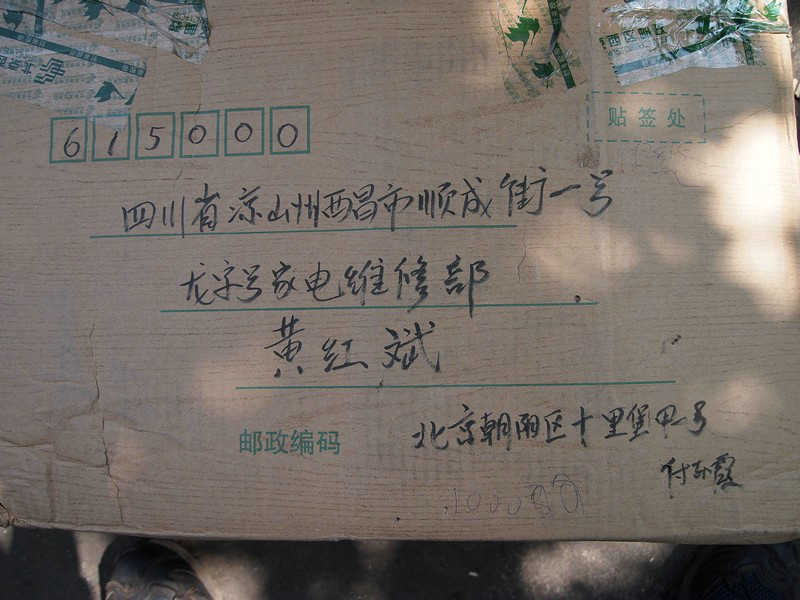 615000
贴签处
四川省凉山州西昌市顺成街一号
龙字号家电维修部
黄红斌
邮政编码
北京朝阳区十里堡甲2号
付东霞